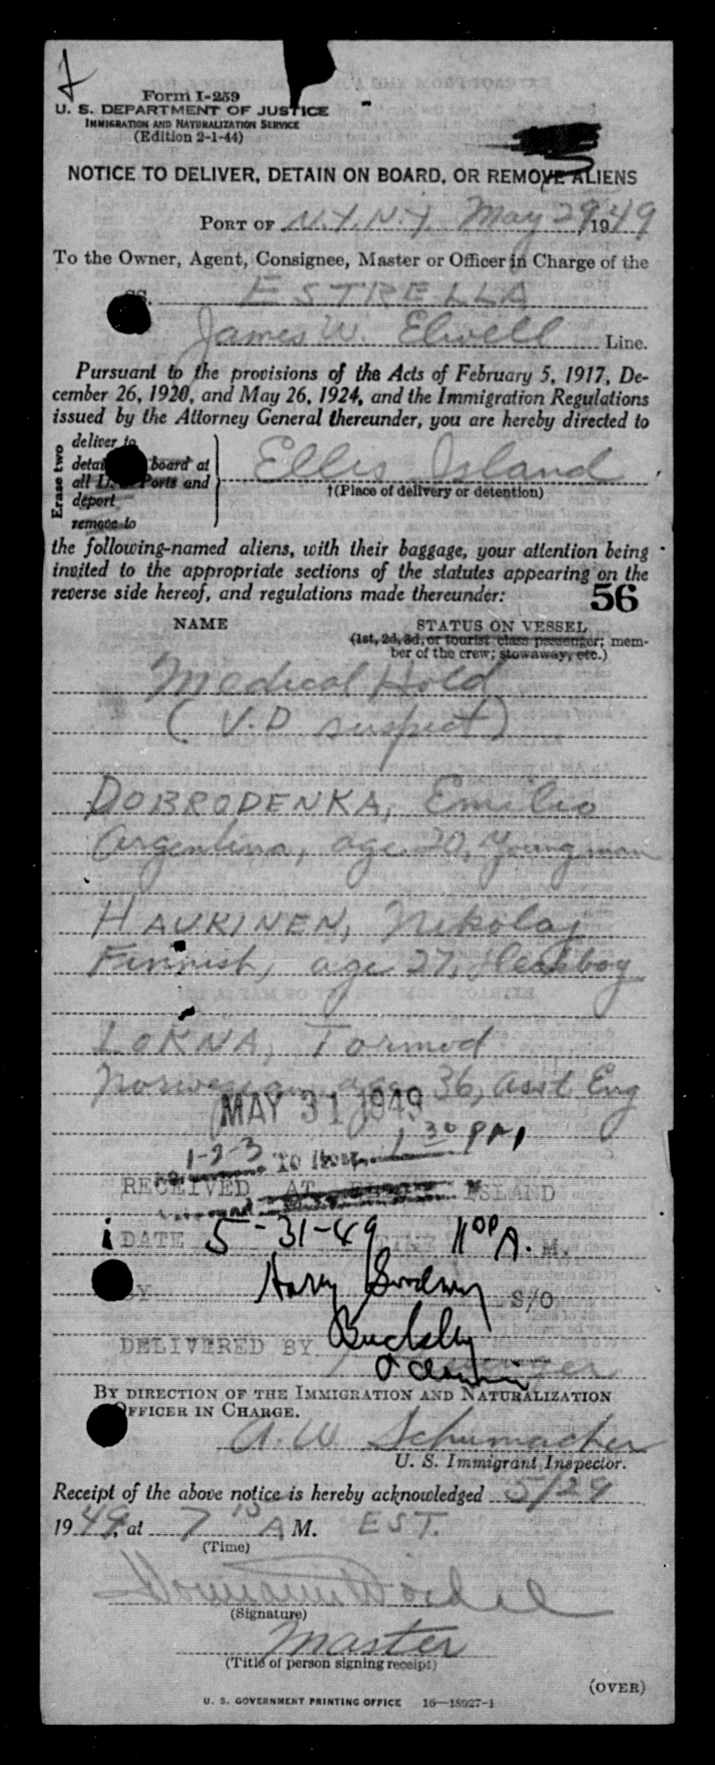 Form I-259
U. S. DEPARTMENT OF JUSTICE
IMMIGRATION AND NATURALIZATION SERVICE
(Edition 2-1-44)
NOTICE TO DELIVER, DETAIN ON BOARD, OR REMOVE ALIENS
PORT OF N.Y. N.Y. May 29, 1949
To the Owner, Agent, Consignee, Master or Officer in Charge of the
SS. ESTRELLA
James W. Elwell Line.
Pursuant to the provisions of the Acts of February 5, 1917, De-
cember 26, 1920, and May 26, 1924, and the Immigration Regulations
issued by the Attorney General thereunder, you are hereby directed to
Erase two
deliver to
detain board at
all U. S. Ports and
deport
remove to
Ellis Island
†(Place of delivery or detention)
the following-named aliens, with their baggage, your attention being
invited to the appropriate sections of the statutes appearing on the
reverse side hereof, and regulations made thereunder:
56
NAME STATUS ON VESSEL
(1st, 2d, 3d, or tourist class passenger; mem-
ber of the crew; stowaway, etc.)
Medical Hold
(V.D suspect)
DOBRODENKA, Emilio
Argentina, age 20, Young man
HAUKINEN, Nikolaj
Finnish, age 27, Deckboy
LOKNA, Tormod
Norwegian, age 36, Asst Eng
MAY 31 1949
1-2-3 TO 1 30 PM
RECEIVED AT ISLAND
DATE 5-31-49 TIME 11 00 A. M.
BY Harry S/O
DELIVERED BY
BY DIRECTION OF THE IMMIGRATION AND NATURALIZATION
OFFICER IN CHARGE.
A. W. Schumacher
U. S. Immigrant Inspector.
Receipt of the above notice is hereby acknowledged 5/29
1949, at 7 15 A M. EST.
(Time)
(Signature)
Master
(Title of person signing receipt)
(OVER)
U. S. GOVERNMENT PRINTING OFFICE 16—18027-1